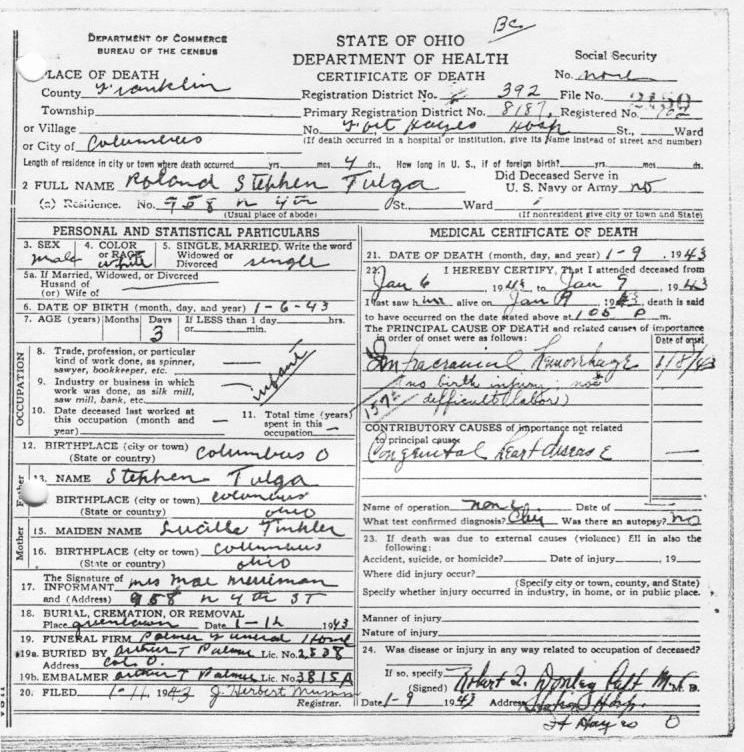 Bc
DEPARTMENT OF COMMERCE
BUREAU OF THE CENSUS
STATE OF OHIO
DEPARTMENT OF HEALTH
CERTIFICATE OF DEATH
Social Security
No. none
PLACE OF DEATH
County Franklin
Registration District No. 392 File No. 2180
Township
Primary Registration District No. 8187 Registered No. 102
or Village
No. Fort Hayes Hosp St., Ward
or City of Columbus
(If death occurred in a hospital or institution, give its Name instead of street and number)
Length of residence in city or town where death occurred yrs. mos. 4 ds. How long in U. S., if of foreign birth? yrs. mos. ds.
2 FULL NAME Roland Stephen Tulga
Did Deceased Serve in
U. S. Navy or Army no
(a) Residence. No. 958 n 4th St., Ward
(Usual place of abode) (If nonresident give city or town and State)
PERSONAL AND STATISTICAL PARTICULARS
3. SEX 4. COLOR or RACE 5. SINGLE, MARRIED. Write the word
Widowed or
Divorced
male white single
5a. If Married, Widowed, or Divorced
Husand of
(or) Wife of
6. DATE OF BIRTH (month, day, and year) 1-6-43
7. AGE (years) Months Days If LESS than 1 day hrs.
or min.
3
OCCUPATION
8. Trade, profession, or particular
kind of work done, as spinner,
sawyer, bookkeeper, etc.
9. Industry or business in which
work was done, as silk mill,
saw mill, bank, etc.
infant
10. Date deceased last worked at
this occupation (month and
year)
11. Total time (years)
spent in this
occupation
12. BIRTHPLACE (city or town) Columbus O
(State or country)
Father
13. NAME Stephen Tulga
BIRTHPLACE (city or town) Columbus
(State or country) Ohio
Mother
15. MAIDEN NAME Lucille Tinkler
16. BIRTHPLACE (city or town) Columbus
(State or country) Ohio
17. The Signature of
INFORMANT Mrs Mae Merriman
and (Address) 958 n 4th ST
18. BURIAL, CREMATION, OR REMOVAL
Place greenlawn Date 1-12 1943
19. FUNERAL FIRM Palmer Funeral Home
19a. BURIED BY Arthur T Palmer Lic. No. 2838
Address Col. O.
19b. EMBALMER Arthur T Palmer Lic. No. 3815A
20. FILED 1-11 1943 J. Herbert
Registrar.
MEDICAL CERTIFICATE OF DEATH
21. DATE OF DEATH (month, day, and year) 1-9, 1943
22. I HEREBY CERTIFY, That I attended deceased from
Jan 6, 1943, to Jan 9, 1943
I last saw him alive on Jan 9, 1943, death is said
to have occurred on the date stated above at 105 P m.
THE PRINCIPAL CAUSE OF DEATH and related causes of importance
in order of onset were as follows:
Date of onset
Intracranial Hemorrhage 1/8/43
(no birth injury; not
difficult labor)
157
CONTRIBUTORY CAUSES of importance not related
to principal cause:
Congenital heart disease
Name of operation none Date of
What test confirmed diagnosis? Was there an autopsy? no
23. If death was due to external causes (violence) fill in also the
following:
Accident, suicide, or homicide? Date of injury 19
Where did injury occur?
(Specify city or town, county, and State)
Specify whether injury occurred in industry, in home, or in public place.
Manner of injury
Nature of injury
24. Was disease or injury in any way related to occupation of deceased?
If so, specify
(Signed) Robert L. Donley Capt M.C. M. D.
Date 1-9 1943 Address Station Hosp.
Ft Hayes O